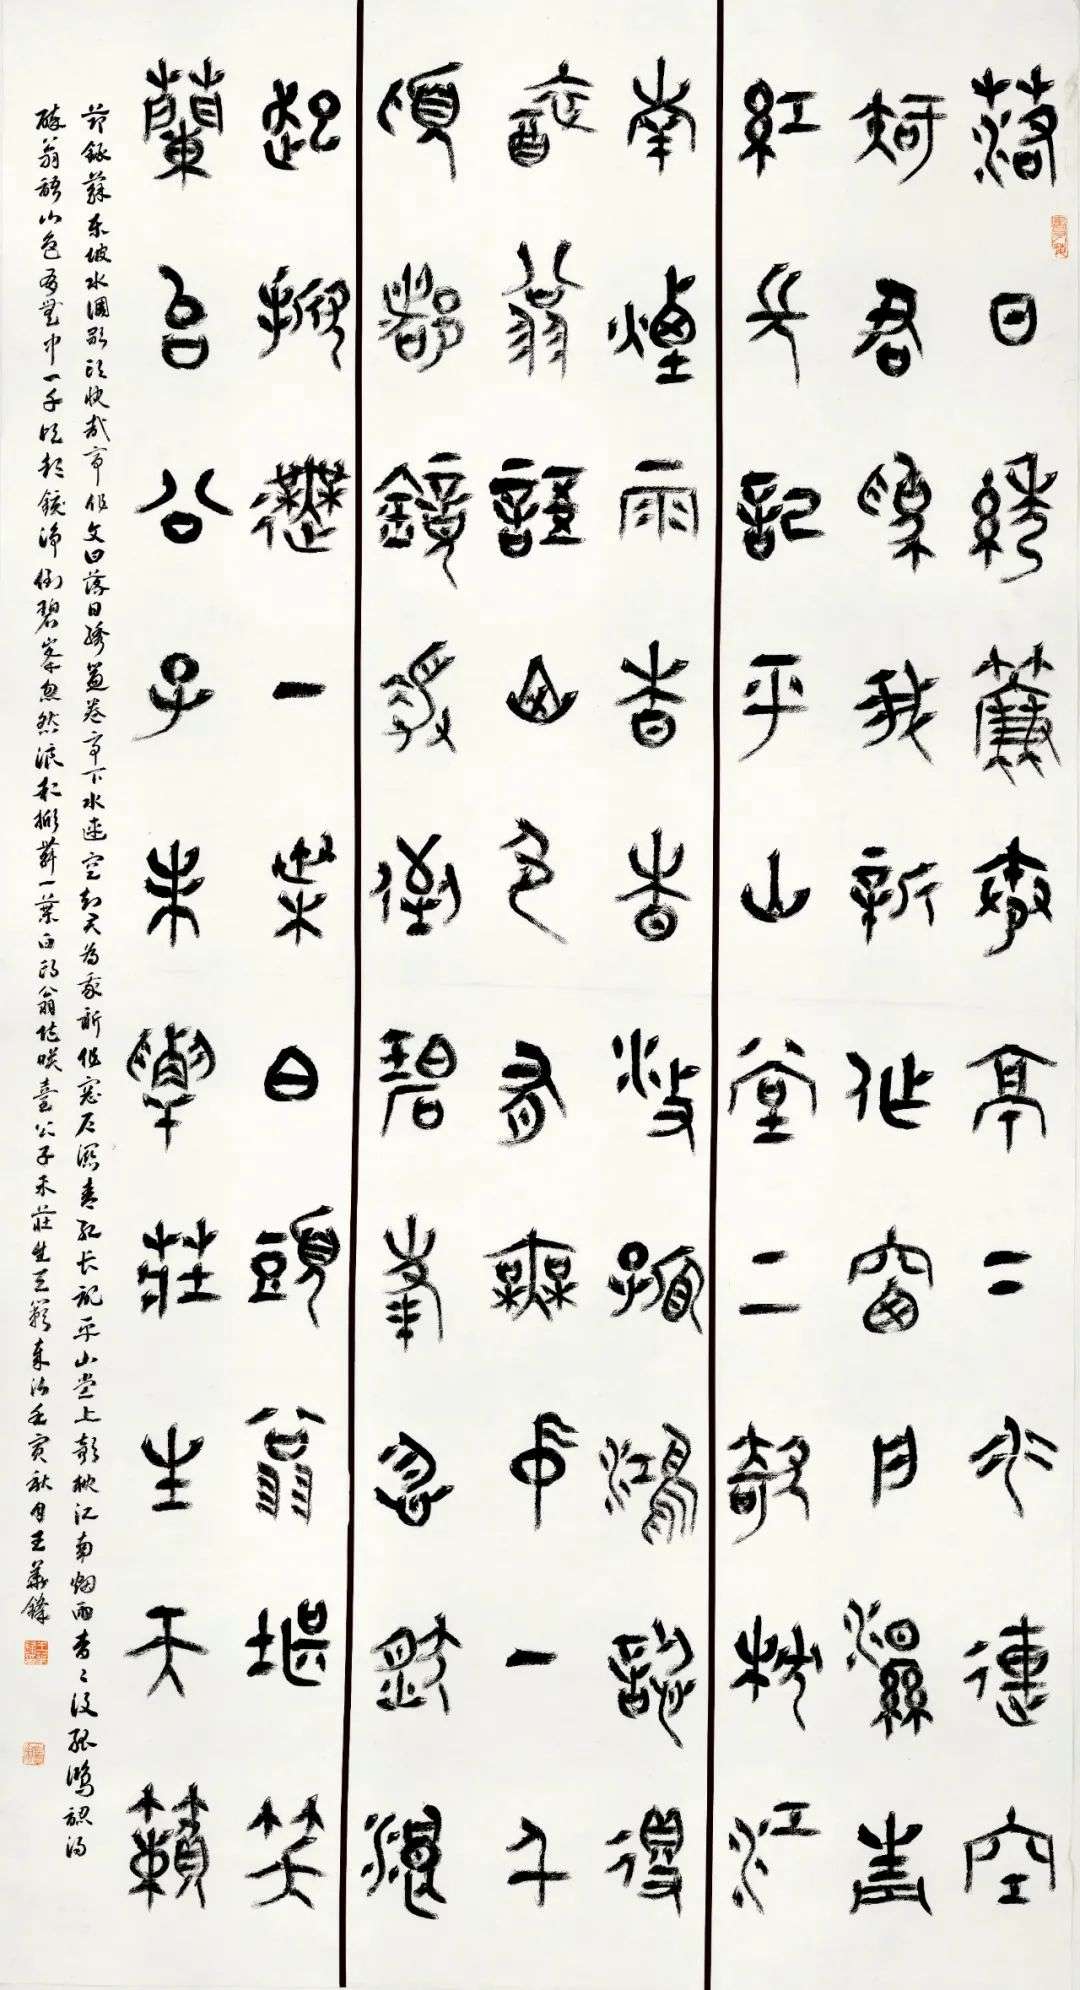 落日繡簾卷亭下水連空
知君為我新作窗戶濕青
紅長記平山堂上欹枕江
南煙雨杳杳沒孤鴻認得
醉翁語山色有無中一千
頃都鏡淨倒碧峯忽然浪
起掀舞一葉白頭翁堪笑
蘭台公子未學莊生天籟
節錄蘇東坡水調歌頭快哉亭作文曰落日繡簾卷亭下水連空知君為我新作窓戶濕青紅長記平山堂上欹枕江南烟雨杳々沒孤鴻認得
醉翁語山色有無中一千頃都鏡淨倒碧峯忽然浪起掀舞一葉白頭翁堪咲臺公子未莊生天籟歲次壬寅秋月王華鋒